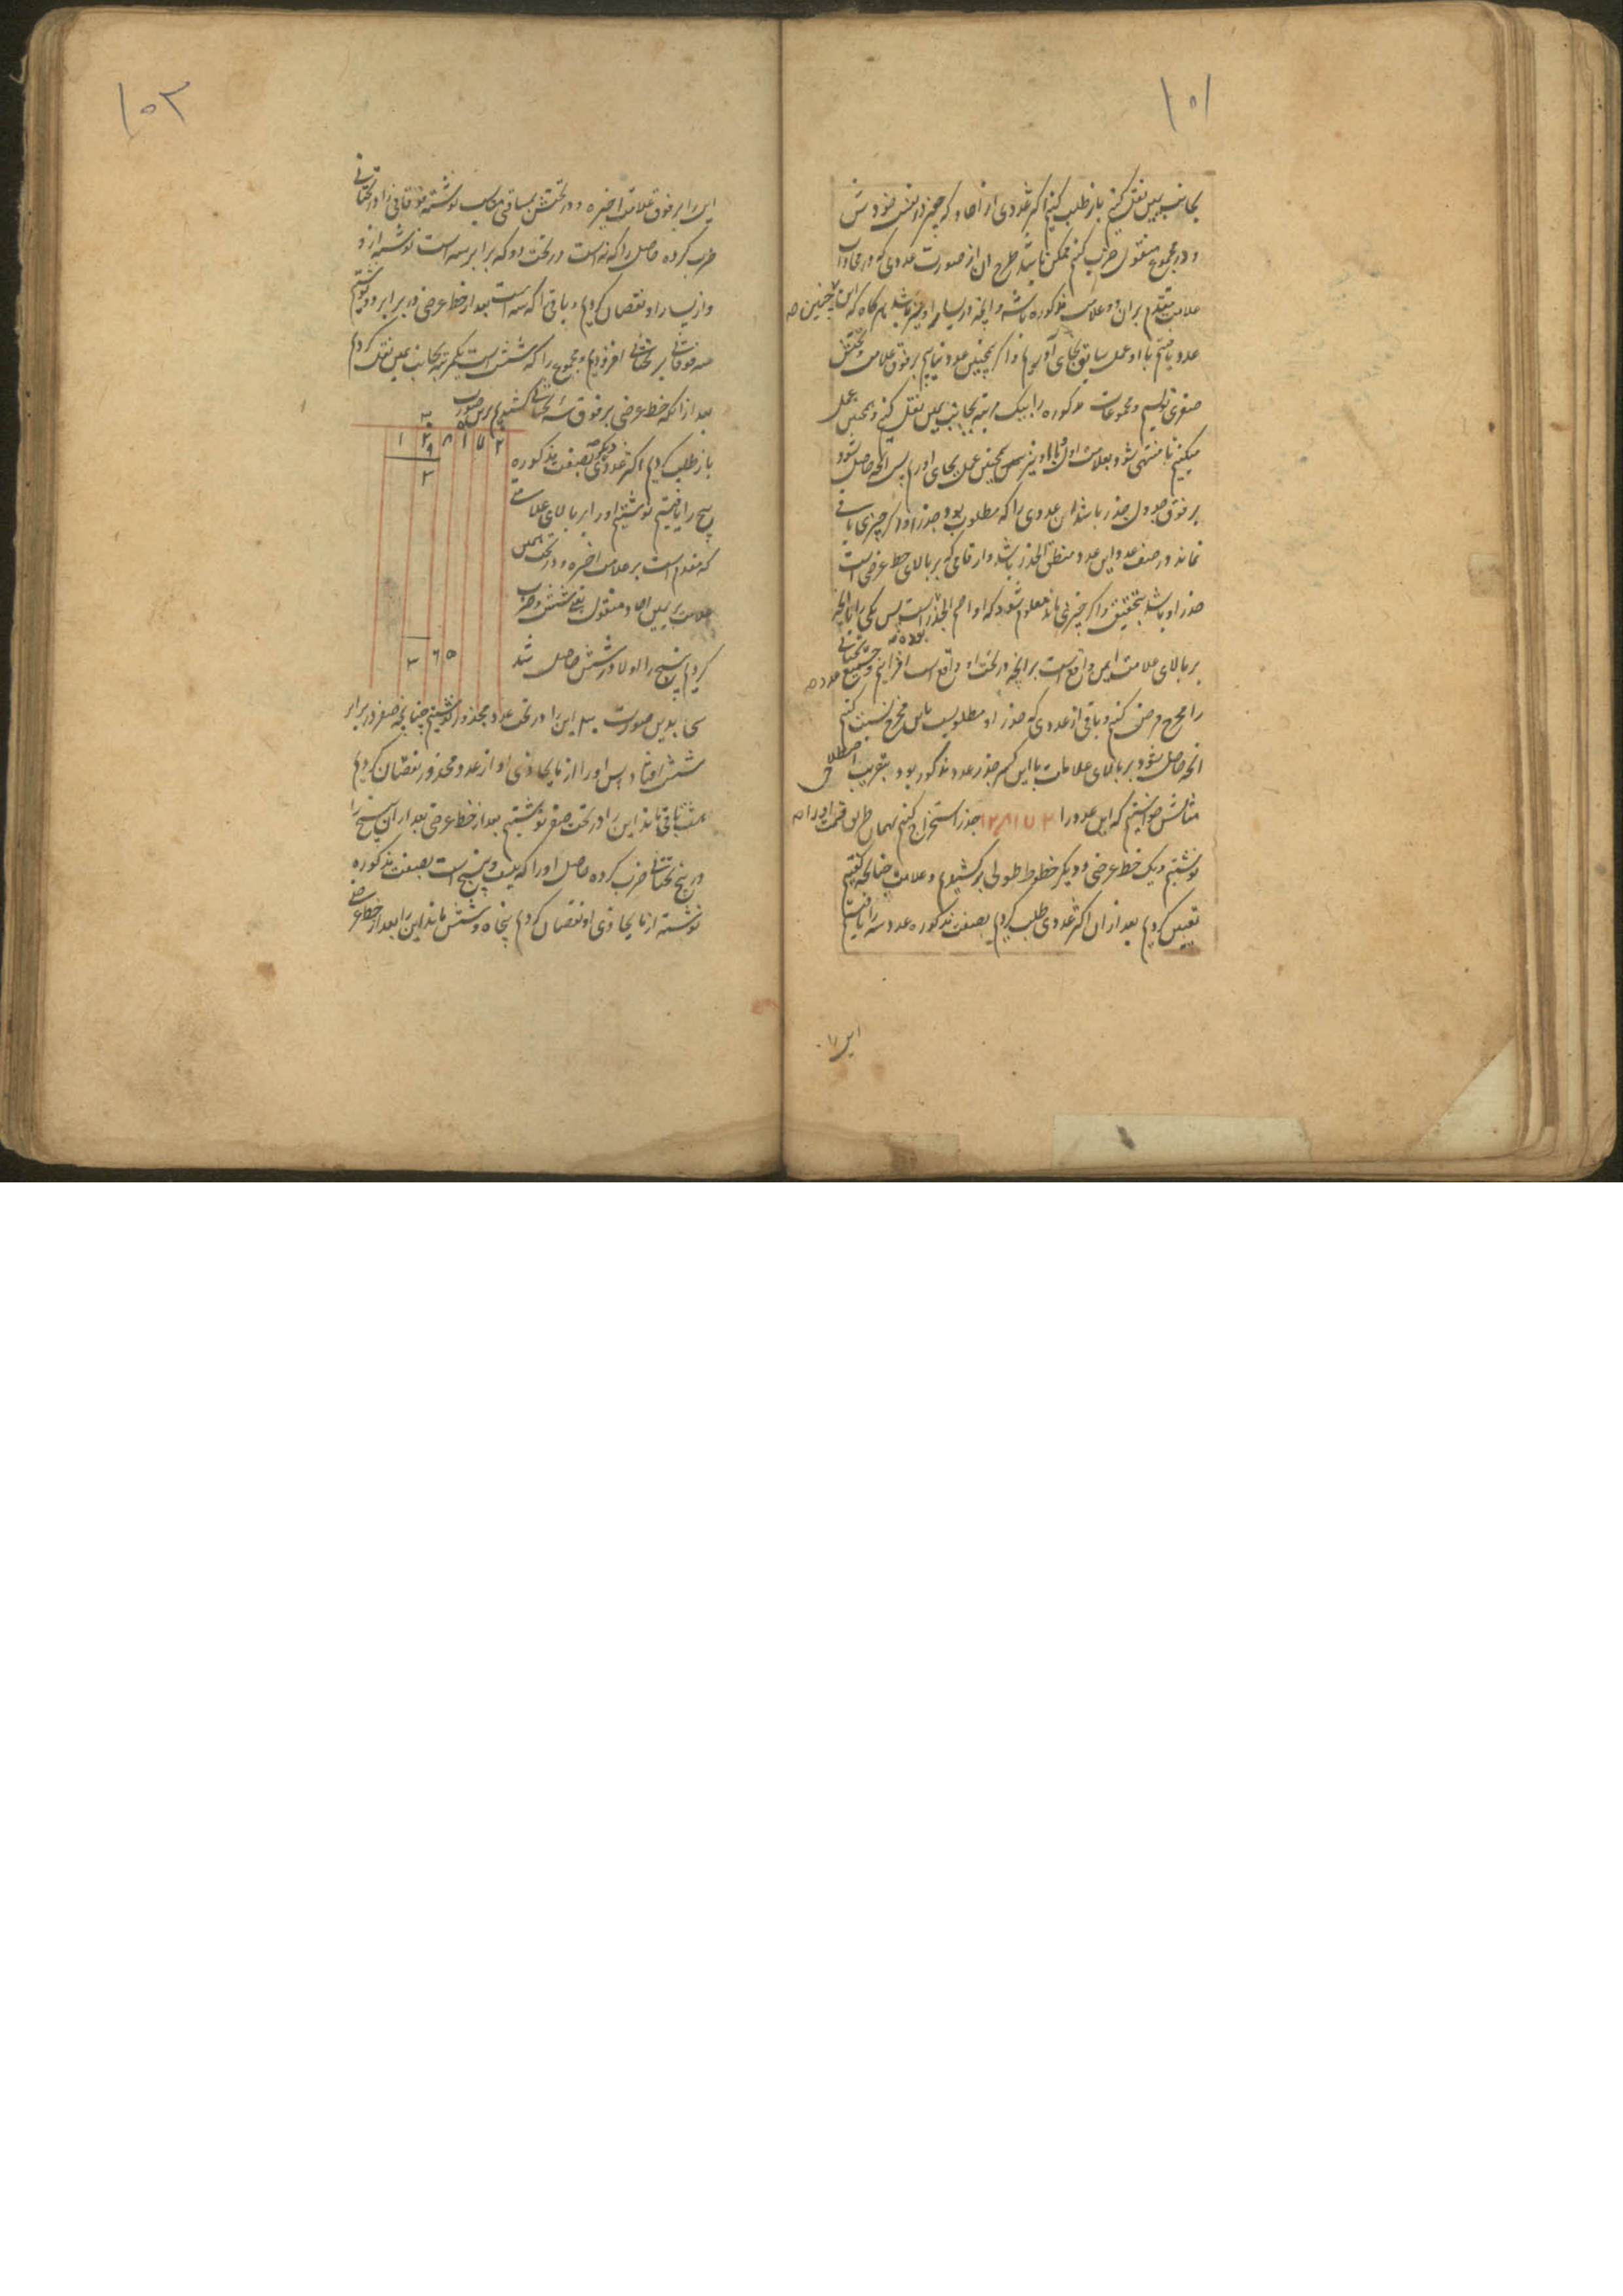 ۱۰۱
بجانب یمین نقل کنیم باز طلب کنیم اکثر عددی از احاد که چون در نفس خودش
و در مجموع منقول ضرب کنیم ممکن باشد طرح ان از صورت عددی که در محاذات
علامت متقدم بران دو علامت مذکوره باشد و انچه در یسار او نیز باشد هرگاه که این چنین
عدد یافتیم با او عمل سابق بجای آوریم و اگر همچنین عدد نیابیم بر فوق علامت و تحتش
صفری نویسیم و مجموعات مذکوره را بیک مرتبه بجانب یمین نقل کنیم و همچنین عمل
میکنیم تا منتهی شود بعلامت اول و با او نیز همچنین عمل بجای اوریم پس انچه حاصل شود
بر فوق جدول جذر باشد ان عددی را که مطلوب بود جذر او و اگر چیزی باقی
نماند در صف عدد این عدد منطق الجذر باشد و ارقامی که بر بالای خط عرضی است
جذر او باشد بتحقیق و اگر چیزی ماند معلوم شود که او اصم الجذر است پس یکی را با انچه
بر بالای علامت ایمن واقع است بر انچه در تحت او واقع است افزاییم و جمیع تحتانی
را مخرج فرض کنیم و باقی از عددی که جذر او مطلوبست باین مخرج نسبت کنیم
انچه حاصل شود بر بالای علامات با این کسر جذر عدد مذکور بود بتقریب اصطلاحی
مثالش خواستیم که این عدد را ۱۲۸۱۷۲ جذر استخراج کنیم بهمان طریق قسمت او را
نوشتیم و یک خط عرضی و دیگر خطوط طولی برکشیدیم و علامت چنانچه گفتیم
تعیین کردیم بعد از ان اکثر عددی طلب کردیم بصفت مذکوره عدد سه را یافتیم
این را
۱۰۲
این را بر فوق علامت اخیره و در تحتش بمسافتی مناسب نوشتیم فوقانی را در تحتانی
ضرب کرده حاصل را که نه است در تحت دو که برابر سه است نوشته از و
و از یسار او نقصان کردیم و باقی را که سه است بعد از خط عرضی در برابر دو نوشتیم
سه فوقانی بر تحتانی افزودیم و مجموع را که شش است یکمرتبه بجانب یمین نقل کردیم
بعد از انکه خط عرضی بر فوق سه تحتانی کشیدیم برین صورت
۳ ۵
۱ ۲ ۸ ۱ ۷ ۲
۹
۳
باز طلب کردیم اکثر عددی دیگر بصفت مذکوره
پنج را یافتیم نوشتیم او را بر بالای علامتی
که مقدم است بر علامت اخیره و در تحت همین
علامت بر یمین احاد منقول یعنی شش و ضرب
کردیم پنج را اولا در شش حاصل شد
۳ ۶ ۵
سی بدین صورت ۳۰ این را در تحت عدد مجذور نوشتیم چنانچه صفر در برابر
شش افتاد پس او را از ما یحاذی او از عدد مجذور نقصان کردیم
هشت باقی ماند این را در تحت صفر نوشتیم بعد از خط عرضی بعد از ان پنج را
در پنج تحتانی ضرب کرده حاصل او را که بیست و پنج است بصفت مذکوره
نوشته از ما یحاذی او نقصان کردیم پنجاه و شش ماند این را بعد از خط عرضی